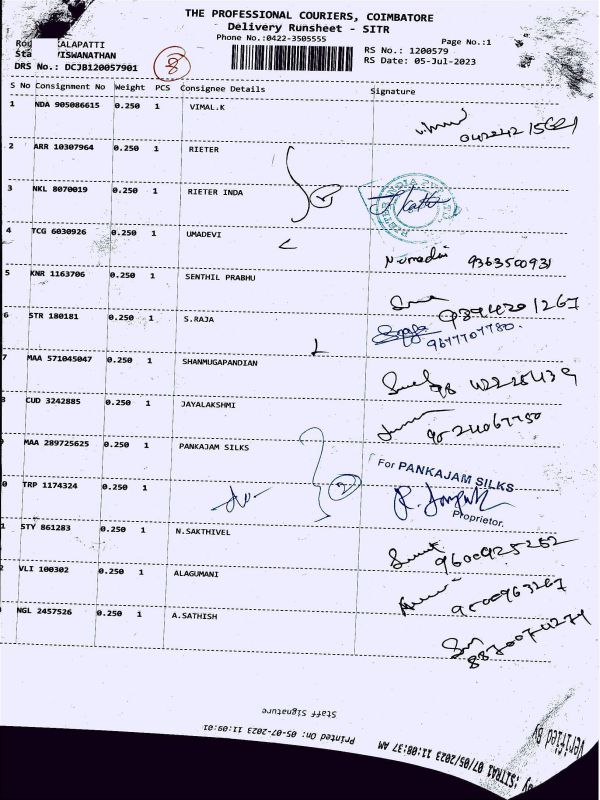 THE PROFESSIONAL COURIERS, COIMBATORE
Delivery Runsheet - SITR
Phone No.:0422-3505555
Page No.:1
KALAPATTI
RS No.: 1200579
VISWANATHAN
RS Date: 05-Jul-2023
DRS No.: DCJB120057901
8
S No Consignment No Weight PCS Consignee Details Signature
1 NDA 905086615 0.250 1 VIMAL.K
2 ARR 10307964 0.250 1 RIETER
3 NKL 8070019 0.250 1 RIETER INDA
4 TCG 6030926 0.250 1 UMADEVI
N.umadai 9363500931
5 KNR 1163706 0.250 1 SENTHIL PRABHU
6 STR 180181 0.250 1 S.RAJA
9677707780
7 MAA 571045047 0.250 1 SHANMUGAPANDIAN
8 CUD 3242885 0.250 1 JAYALAKSHMI
MAA 289725625 0.250 1 PANKAJAM SILKS
2
For PANKAJAM SILKS
0 TRP 1174324 0.250 1
Proprietor.
1 STY 861283 0.250 1 N.SAKTHIVEL
9600925252
2 VLI 100302 0.250 1 ALAGUMANI
9500963267
NGL 2457526 0.250 1 A.SATHISH
8870074274
Staff Signature
Printed On: 05-07-2023 11:09:01
Verified By
by :SITRA1 07/05/2023 11:08:37 AM